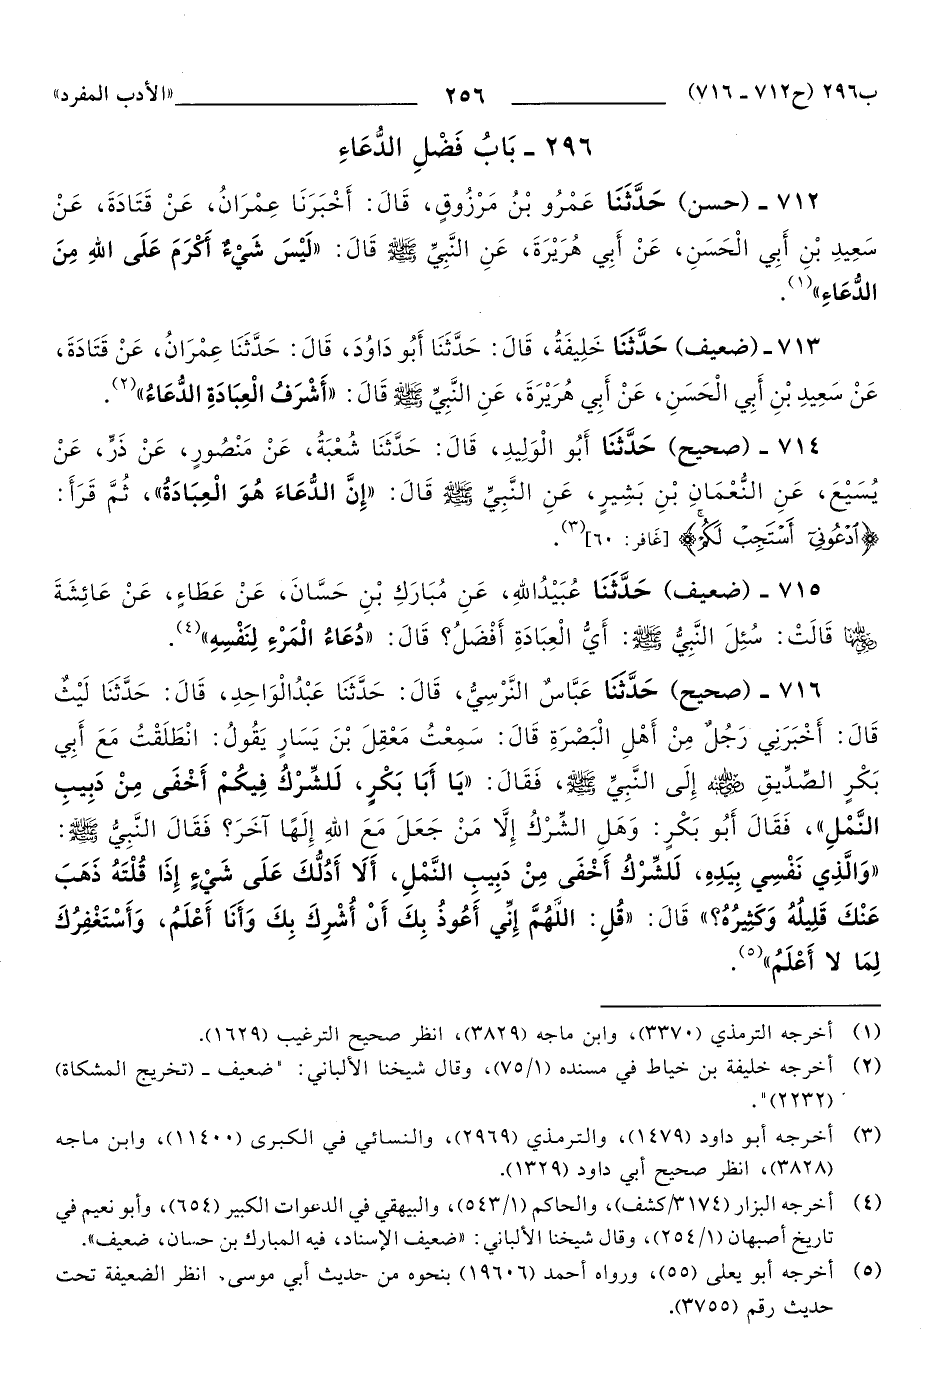 ب٢٩٦ (ح٧١٢ ـ ٧١٦) ٢٥٦ «الأدب المفرد»
٢٩٦ ـ بَابُ فَضْلِ الدُّعَاءِ
٧١٢ ـ (حسن) حَدَّثَنَا عَمْرُو بْنُ مَرْزُوقٍ، قَالَ: أَخْبَرَنَا عِمْرَانُ، عَنْ قَتَادَةَ، عَنْ
سَعِيدِ بْنِ أَبِي الْحَسَنِ، عَنْ أَبِي هُرَيْرَةَ، عَنِ النَّبِيِّ ﷺ قَالَ: «لَيْسَ شَيْءٌ أَكْرَمَ عَلَى اللهِ مِنَ
الدُّعَاءِ»(١).
٧١٣ ـ (ضعيف) حَدَّثَنَا خَلِيفَةُ، قَالَ: حَدَّثَنَا أَبُو دَاوُدَ، قَالَ: حَدَّثَنَا عِمْرَانُ، عَنْ قَتَادَةَ،
عَنْ سَعِيدِ بْنِ أَبِي الْحَسَنِ، عَنْ أَبِي هُرَيْرَةَ، عَنِ النَّبِيِّ ﷺ قَالَ: «أَشْرَفُ الْعِبَادَةِ الدُّعَاءُ»(٢).
٧١٤ ـ (صحيح) حَدَّثَنَا أَبُو الْوَلِيدِ، قَالَ: حَدَّثَنَا شُعْبَةُ، عَنْ مَنْصُورٍ، عَنْ ذَرٍّ، عَنْ
يُسَيْعَ، عَنِ النُّعْمَانِ بْنِ بَشِيرٍ، عَنِ النَّبِيِّ ﷺ قَالَ: «إِنَّ الدُّعَاءَ هُوَ الْعِبَادَةُ»، ثُمَّ قَرَأَ:
﴿ٱدْعُونِىٓ أَسْتَجِبْ لَكُمْۚ﴾ [غَافر: ٦٠](٣).
٧١٥ ـ (ضعيف) حَدَّثَنَا عُبَيْدُاللهِ، عَنِ مُبَارَكِ بْنِ حَسَّانَ، عَنْ عَطَاءٍ، عَنْ عَائِشَةَ
رضي الله عنها قَالَتْ: سُئِلَ النَّبِيُّ ﷺ: أَيُّ الْعِبَادَةِ أَفْضَلُ؟ قَالَ: «دُعَاءُ الْمَرْءِ لِنَفْسِهِ»(٤).
٧١٦ ـ (صحيح) حَدَّثَنَا عَبَّاسٌ النَّرْسِيُّ، قَالَ: حَدَّثَنَا عَبْدُالْوَاحِدِ، قَالَ: حَدَّثَنَا لَيْثٌ
قَالَ: أَخْبَرَنِي رَجُلٌ مِنْ أَهْلِ الْبَصْرَةِ قَالَ: سَمِعْتُ مَعْقِلَ بْنَ يَسَارٍ يَقُولُ: انْطَلَقْتُ مَعَ أَبِي
بَكْرٍ الصِّدِّيقِ رضي الله عنه إِلَى النَّبِيِّ ﷺ، فَقَالَ: «يَا أَبَا بَكْرٍ، لَلشِّرْكُ فِيكُمْ أَخْفَى مِنْ دَبِيبِ
النَّمْلِ»، فَقَالَ أَبُو بَكْرٍ: وَهَلِ الشِّرْكُ إِلَّا مَنْ جَعَلَ مَعَ اللهِ إِلَهًا آخَرَ؟ فَقَالَ النَّبِيُّ ﷺ:
«وَالَّذِي نَفْسِي بِيَدِهِ، لَلشِّرْكُ أَخْفَى مِنْ دَبِيبِ النَّمْلِ، أَلَا أَدُلُّكَ عَلَى شَيْءٍ إِذَا قُلْتَهُ ذَهَبَ
عَنْكَ قَلِيلُهُ وَكَثِيرُهُ؟» قَالَ: «قُلِ: اللَّهُمَّ إِنِّي أَعُوذُ بِكَ أَنْ أُشْرِكَ بِكَ وَأَنَا أَعْلَمُ، وَأَسْتَغْفِرُكَ
لِمَا لا أَعْلَمُ»(٥).
(١) أخرجه الترمذي (٣٣٧٠)، وابن ماجه (٣٨٢٩)، انظر صحيح الترغيب (١٦٢٩).
(٢) أخرجه خليفة بن خياط في مسنده (٧٥/١)، وقال شيخنا الألباني: "ضعيف ـ (تخريج المشكاة)
(٢٢٣٢)".
(٣) أخرجه أبو داود (١٤٧٩)، والترمذي (٢٩٦٩)، والنسائي في الكبرى (١١٤٠٠)، وابن ماجه
(٣٨٢٨)، انظر صحيح أبي داود (١٣٢٩).
(٤) أخرجه البزار (٣١٧٤/كشف)، والحاكم (٥٤٣/١)، والبيهقي في الدعوات الكبير (٦٥٤)، وأبو نعيم في
تاريخ أصبهان (٢٥٤/١)، وقال شيخنا الألباني: «ضعيف الإسناد، فيه المبارك بن حسان، ضعيف».
(٥) أخرجه أبو يعلى (٥٥)، ورواه أحمد (١٩٦٠٦) بنحوه من حديث أبي موسى. انظر الضعيفة تحت
حديث رقم (٣٧٥٥).